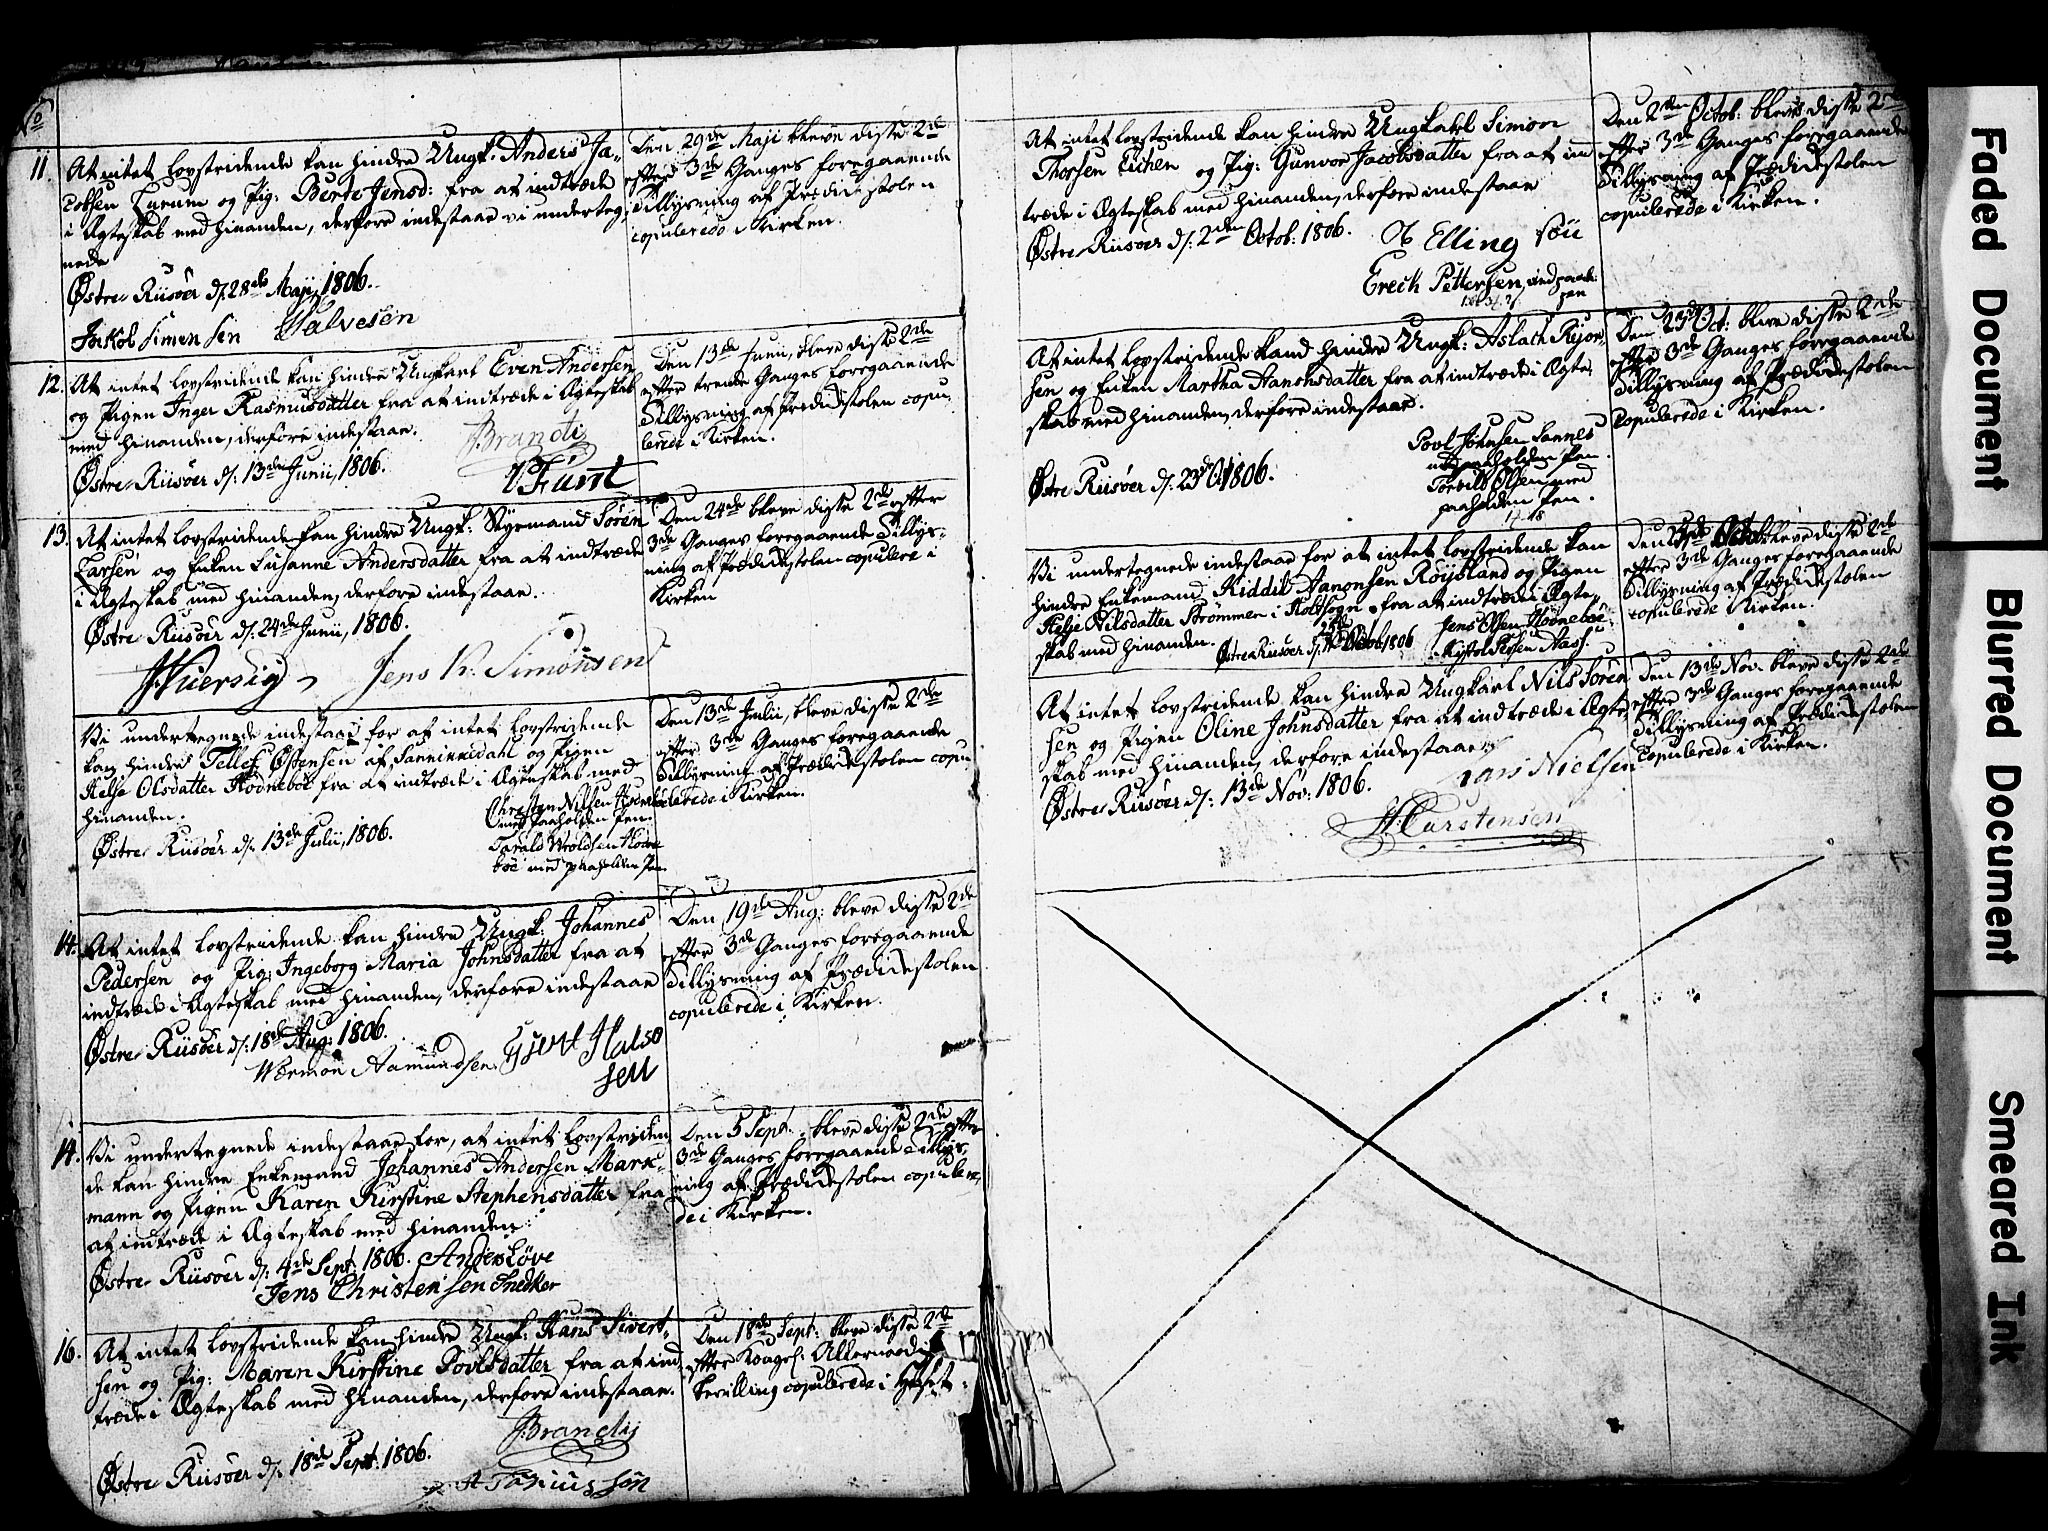 No
11. At intet lovstridende kan hindre Ungk: Anders Ja-
cobsen Furum og Pig: Berte Jensd: fra at indtræde
i Ægteskab med hinanden, derfore indestaar vi underteg-
nede
Østre Riisøer d/: 28de Maji, 1806.
Jakob Simensen Halvesen
Den 29de Maji bleve disse 2de
efter 3de Ganges foregaaende
Tillysning af Prædikestolen
copulerede i Kirken.
12. At intet lovstridende kan hindre Ungkarl Even Andersen
og Pigen Inger Rasmusdatter fra at indtræde i Ægteskab
med hinanden, derfore indestaar.
Østre Riisøer d/: 13de Junii, 1806.
Brandt
Funt
Den 13de Junii, bleve disse 2de
efter trende Ganges foregaaende
Tillysning af Prædikestolen copu-
lerede i Kirken.
13. At intet lovstridende kan hindre Ungk: Styrmand Søren
Larsen og Enken Susanne Andersdatter fra at indtræde
i Ægteskab med hinanden, derfore indestaar.
Østre Riisøer d/: 24de Junii, 1806.
Jens K. Simonsen
Den 24de bleve disse 2de efter
3de Ganges foregaaende Tillys-
ning af Prædikestolen copulere i
Kirken
Vi undertegnede indestaar for at intet lovstridende
kan hindre Tellef Østensen af Sannikedahl og Pigen
Kelse Olsdatter Hødnebøe fra at indtræde i Ægteskab med
hinanden.
Østre Riisøer d/: 13de Julii, 1806.
Christen Nilsen
med paaholden Pen.
Tarald Wroldsen Hødne
bøe med paaholden Pen
Den 13de Julii, bleve disse 2de
efter 3de Ganges foregaaende
Tillysning af Prædikestolen copu-
lerede i Kirken.
14. At intet lovstridende kan hindre Ungk: Johannes
Pedersen og Pig: Ingeborg Maria Johnsdatter fra at
indtræde i Ægteskab med hinanden, derfore indestaar
Østre Riisøer d/: 18de Aug: 1806.
Wermon Aamundsen Gjert Halvo
sen
Den 19de Aug: bleve disse 2de
efter 3de Ganges foregaaende
Tillysning af Prædikestolen
copulerede i Kirken.
14. Vi undertegnede indestaar for, at intet lovstriden
de kan hindre Enkemand Johannes Andersen Mark-
mann og Pigen Karen Kirstine Stephensdatter fra
at indtræde i Ægteskab med hinanden.
Østre Riisøer d/: 4de Sept: 1806. Anders Løve
Jens Christensen Snedker
Den 5 Sept: bleve disse 2de efter
3de Ganges foregaaende Tillys-
ning af Prædikestolen copulere-
de i Kirken.
16. At intet lovstridende kan hindre Ungk: Hans Sivert-
sen og Pig: Maren Kirstine Povlsdatter fra at ind-
træde i Ægteskab med hinanden, derfore indestaar.
Brandt
Østre Riisøer d/: 18de Sept: 1806.
A Tariussøn
Den 18de Sept: bleve disse 2de
efter Kongel: Allernaadig
bevilling copulerede i Huset.
At intet lovstridende kan hindre Ungkarl Simon
Thorsen Eichen og Pig: Gunvor Jacobsdatter fra at ind
træde i Ægteskab med hinanden, derfore indestaar
Østre Riisøer d/: 2den Octob: 1806. O Elling søn
Erech Pettersen, med paaholden
pen
Den 2den Octob: bleve disse 2de
efter 3de Ganges foregaaende
Tillysning af Prædikestolen
copulerede i Kirken.
At intet lovstridende kand hindre Ungk: Aslach Reior-
sen og Enken Martha Hanchsdatter fra at indtræde i Ægte-
skab med hinanden, derfore indestaar.
Povl Johnsen Sannes
med paaholden Pen.
Torvild Olsen med
paaholden Pen.
Østre Riisøer d/: 23d Oct 1806.
Den 23d Oct: bleve disse 2de
efter 3de Ganges foregaaende
Tillysning af Prædikestolen
Copulerede i Kirken.
Vi undertegnede indestaar for at intet lovstridende kan
hindre Enkemand Kiddil Aanonsen Røysland og Pigen
Kelje Nilsdatter Strømmen i Holt Sogn fra at indtræde i Ægte-
skab med hinanden. Østre Riisøer d/: Octob 1806
Jens Olsen Hødnebøe
Den Octob bleve disse 2de
efter 3de Ganges foregaaende
Tillysning af Prædikestolen
copulerede i Kirken.
At intet lovstridende kan hindre Ungkarl Nils Søren
sen og Pigen Oline Johnsdatter fra at indtræde i Ægte-
skab med hinanden, derfore indestaar
Østre Riisøer d/: 13de Nov: 1806. Lars Nielsen
Carstensen
Den 13de Nov. bleve disse 2de
efter 3de Ganges foregaaende
Tillysning af Prædikestolen
Copulerede i Kirken.
Faded Document
Blurred Document
Smeared Ink